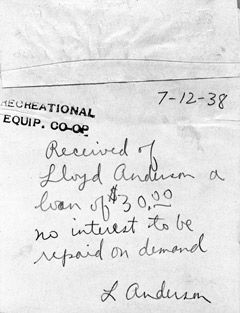 7-12-38
RECREATIONAL
EQUIP. CO-OP
Received of
Lloyd Anderson a
loan of $30.00
no interest to be
repaid on demand
L Anderson